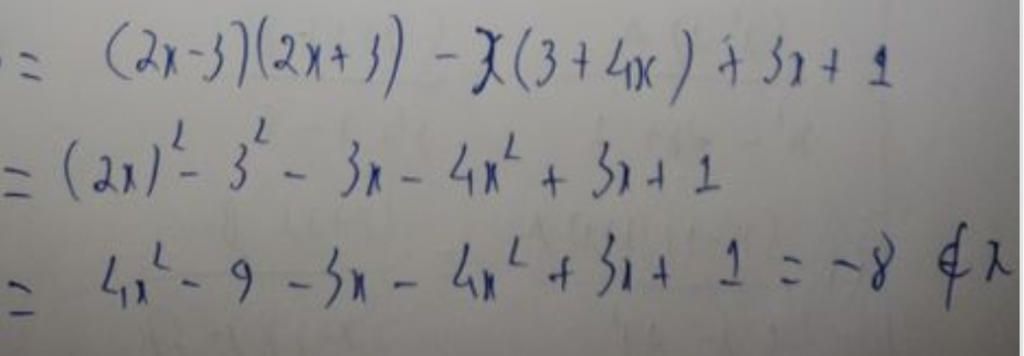 = (2x-3)(2x+3) - x(3+4x) + 3x + 1
= (2x)² - 3² - 3x - 4x² + 3x + 1
= 4x² - 9 - 3x - 4x² + 3x + 1 = -8 ∉ x